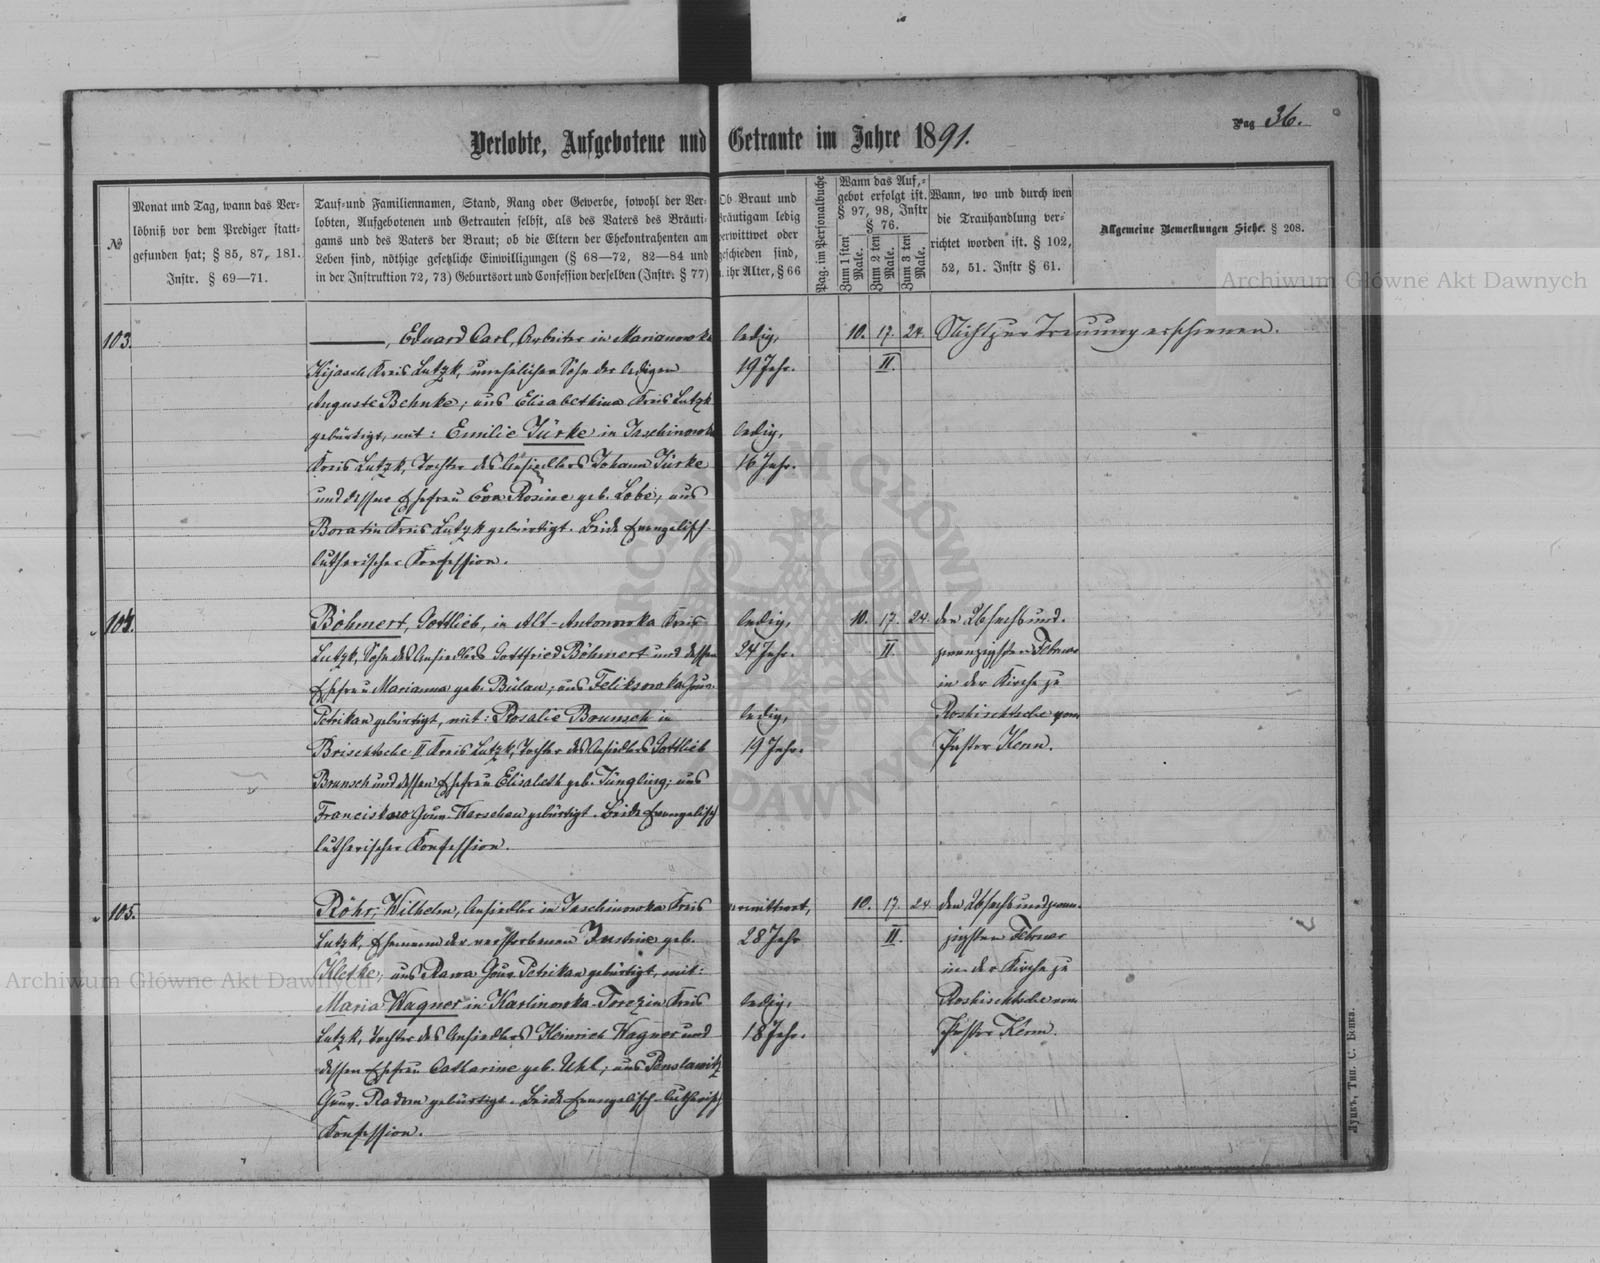 Pag 36.
Verlobte, Aufgebotene und Getraute im Jahre 1891.
№
Monat und Tag, wann das Ver-
löbniß vor dem Prediger statt-
gefunden hat; § 85, 87, 181.
Instr. § 69—71.
Tauf- und Familiennamen, Stand, Rang oder Gewerbe, sowohl der Ver-
lobten, Aufgebotenen und Getrauten selbst, als des Vaters des Bräuti-
gams und des Vaters der Braut; ob die Eltern der Ehekontrahenten am
Leben sind, nöthige gesetzliche Einwilligungen (§ 68—72, 82—84 und
in der Instruktion 72, 73) Geburtsort und Confession derselben (Instr. § 77)
Ob Braut und
Bräutigam ledig
verwittwet oder
geschieden sind,
u. ihr Alter, § 66
Pag. im Personalbuche
Wann das Auf-
gebot erfolgt ist.
§ 97, 98, Instr
§ 76.
Zum 1sten Male.
Zum 2 ten Male.
Zum 3 ten Male.
Wann, wo und durch wen
die Trauhandlung ver-
richtet worden ist. § 102,
52, 51. Instr § 61.
Allgemeine Bemerkungen Siehe. § 208.
103.
, Eduard Carl, Arbeiter in Marianowka
Kreis Lutzk, unehelicher Sohn der ledigen
Auguste Behnke; aus Elisabethina Kreis Lutzk
gebürtigt, mit: Emilie Jürke in Jaschinowka
Kreis Lutzk, Tochter des Ansiedlers Johann Jürke
und dessen Ehefrau Eva Rosine geb. Lobe; aus
Boratin Kreis Lutzk gebürtigt. Beide Evangelisch-
lutherischer Konfession.
ledig,
19 Jahr.
ledig,
16 Jahr.
10. 17. 24.
II.
Nicht zur Trauung erschienen.
104.
Böhmert, Gottlieb, in Alt-Antonowka Kreis
Lutzk, Sohn des Ansiedlers Gottfried Böhmert und dessen
Ehefrau Marianna geb. Bülau; aus Feliksowka Gouv.
Petrikau gebürtigt, mit: Rosalie Brunsch in
Brischtsche II Kreis Lutzk, Tochter des Ansiedlers Gottlieb
Brunsch und dessen Ehefrau Elisabeth geb. Jüngling; aus
Franciskowo Gouv. Warschau gebürtigt. Beide Evangelisch
lutherischer Konfession.
ledig,
24 Jahr.
ledig,
19 Jahr.
10. 17. 24
II.
den 26 sechsund-
zwanzigsten Februar
in der Kirche zu
Roshischtsche vom
Pastor Kern.
105.
Röhr, Wilhelm, Ansiedler in Jaschinowka Kreis
Lutzk, Ehemann der verstorbenen Justine geb.
Kletke; aus Rawa Gouv. Petrikau gebürtigt, mit:
Maria Wagner in Karlinowka-Torczin Kreis
Lutzk, Tochter des Ansiedlers Heinrich Wagner und
dessen Ehefrau Catharine geb. Uhl; aus
Gouv. Radom gebürtigt. Beide Evangelisch-lutherisch
Konfession.
verwittwet,
28 Jahr
ledig,
18 Jahr.
10. 17. 24
II.
den 26 sechsundzwan-
zigsten Februar
in der Kirche zu
Roshischtsche vom
Pastor Kern.
Луцкъ, Тип. С. Бонка.
Archiwum Główne Akt Dawnych
Archiwum Główne Akt Dawnych
ARCHIWUM GŁÓWNE AKT DAWNYCH